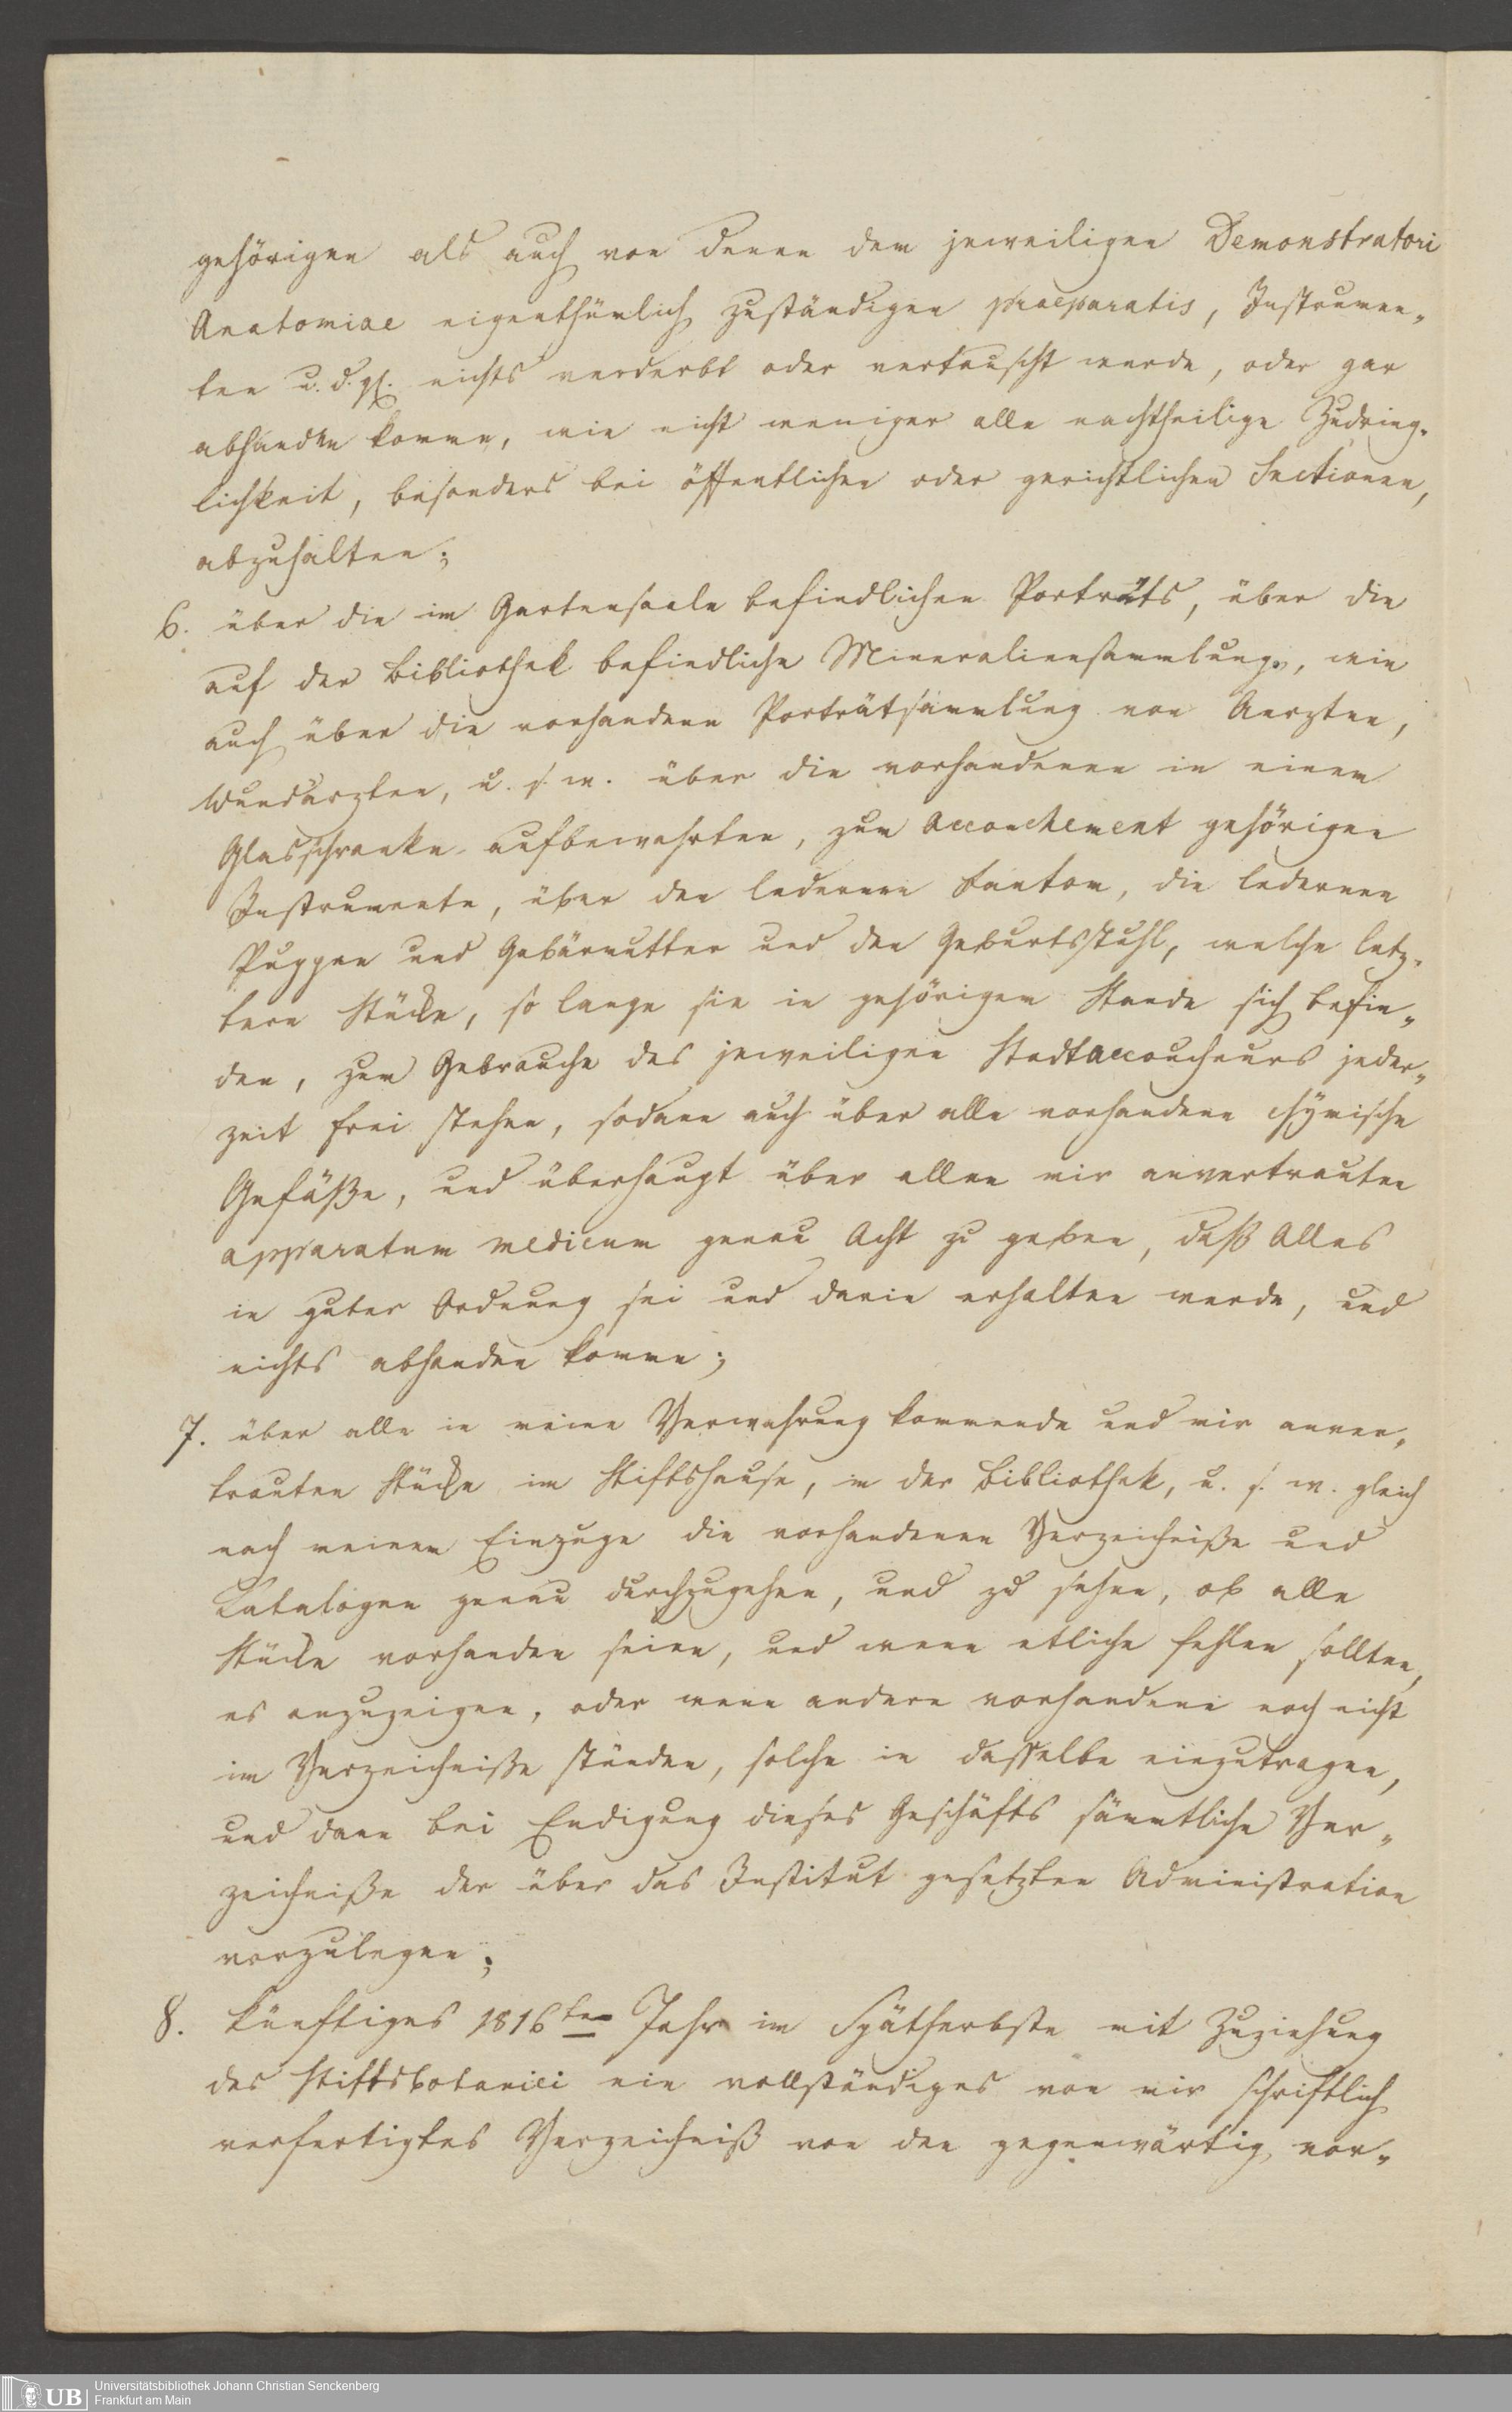 gehörigen als auch von denen dem jeweiligen Demonstratori
Anatomiae eigenthümlich zuständigen praeparatis, Instrumen„
ten u. d. gl. nichts verderbt oder vertauscht werde, oder gar
abhanden komme, wie nicht weniger alle nachtheilige Zudring„
lichkeit, besonders bei öffentlichen oder gerichtlichen Sectionen,
abzuhalten;
6. über die im Gartensaale befindlichen Porträts, über die
auf der Bibliothek befindliche Mineraliensammlung, wie
auch über die vorhandene Porträtsammlung von Aerzten,
Wundärzten, u. s. w. über die vorhandenen in einem
Glasschranke aufbewahrten, zum Accouchement gehörigen
Instrumente, über den ledernen Fantom, die ledernen
Puppen und Gebärmutter und den Geburtsstuhl, welche letz„
tern Stücke, so lange sie in gehörigem Stande sich befin„
den, zum Gebrauche des jeweiligen Stadtaccoucheurs jeder„
zeit frei stehen, sodann auch über alle vorhandene chymische
Gefäße, und überhaupt über allen mir anvertrauten
apparatum medicum genau Acht zu geben, daß Alles
in guter Ordnung sei und darin erhalten werde, und
nichts abhanden komme;
7. über alle in meine Verwahrung kommende und mir anver„
trauten Stücke im Stiftshause, in der Bibliothek, u. s. w. gleich
nach meinem Einzuge die vorhandenen Verzeichniße und
Katalogen genau durchzugehen, und zu sehen, ob alle
Stücke vorhanden seien, und wenn etliche fehlen sollten,
es anzuzeigen, oder wenn andere vorhandene noch nicht
im Verzeichniße stünden, solche in dasselbe einzutragen,
und dann bei Endigung dieses Geschäfts sämmtliche Ver„
zeichniße der über das Institut gesetzten Administration
vorzulegen;
8. künftiges 1816ten Jahr im Spätherbste mit Zuziehung
des Stiftsbotanici ein vollständiges von mir schriftlich
verfertigtes Verzeichniß von den gegenwärtig vor„
UB
Universitätsbibliothek Johann Christian Senckenberg
Frankfurt am Main